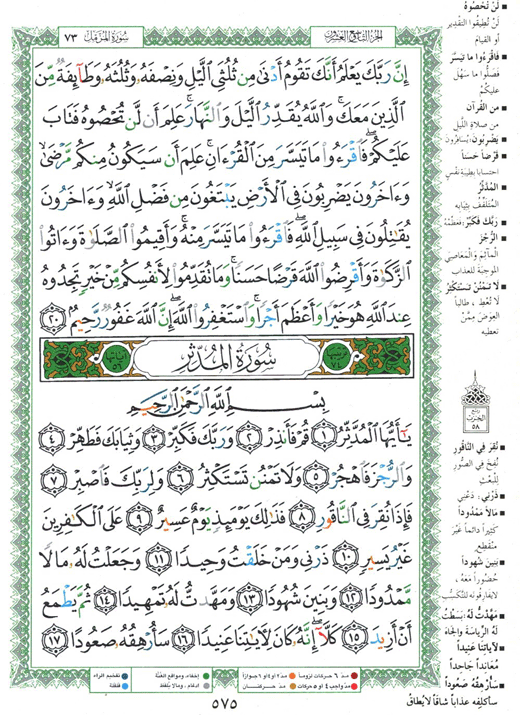 الجزء التاسع والعشرون
سورة المزمل ٧٣
إِنَّ رَبَّكَ يَعْلَمُ أَنَّكَ تَقُومُ أَدْنَىٰ مِن ثُلُثَيِ ٱلَّيْلِ وَنِصْفَهُۥ وَثُلُثَهُۥ وَطَآئِفَةٌ مِّنَ
ٱلَّذِينَ مَعَكَ ۚ وَٱللَّهُ يُقَدِّرُ ٱلَّيْلَ وَٱلنَّهَارَ ۚ عَلِمَ أَن لَّن تُحْصُوهُ فَتَابَ
عَلَيْكُمْ ۖ فَٱقْرَءُوا۟ مَا تَيَسَّرَ مِنَ ٱلْقُرْءَانِ ۚ عَلِمَ أَن سَيَكُونُ مِنكُم مَّرْضَىٰ ۙ
وَءَاخَرُونَ يَضْرِبُونَ فِى ٱلْأَرْضِ يَبْتَغُونَ مِن فَضْلِ ٱللَّهِ ۙ وَءَاخَرُونَ
يُقَٰتِلُونَ فِى سَبِيلِ ٱللَّهِ ۖ فَٱقْرَءُوا۟ مَا تَيَسَّرَ مِنْهُ ۚ وَأَقِيمُوا۟ ٱلصَّلَوٰةَ وَءَاتُوا۟
ٱلزَّكَوٰةَ وَأَقْرِضُوا۟ ٱللَّهَ قَرْضًا حَسَنًا ۚ وَمَا تُقَدِّمُوا۟ لِأَنفُسِكُم مِّنْ خَيْرٍ تَجِدُوهُ
عِندَ ٱللَّهِ هُوَ خَيْرًا وَأَعْظَمَ أَجْرًا ۚ وَٱسْتَغْفِرُوا۟ ٱللَّهَ ۖ إِنَّ ٱللَّهَ غَفُورٌ رَّحِيمٌ ٢٠
سُورَةُ المُدَّثِّرِ
آياتها ٥٦
بِسْمِ ٱللَّهِ ٱلرَّحْمَٰنِ ٱلرَّحِيمِ
يَٰٓأَيُّهَا ٱلْمُدَّثِّرُ ١ قُمْ فَأَنذِرْ ٢ وَرَبَّكَ فَكَبِّرْ ٣ وَثِيَابَكَ فَطَهِّرْ ٤
وَٱلرُّجْزَ فَٱهْجُرْ ٥ وَلَا تَمْنُن تَسْتَكْثِرُ ٦ وَلِرَبِّكَ فَٱصْبِرْ ٧
فَإِذَا نُقِرَ فِى ٱلنَّاقُورِ ٨ فَذَٰلِكَ يَوْمَئِذٍ يَوْمٌ عَسِيرٌ ٩ عَلَى ٱلْكَٰفِرِينَ
غَيْرُ يَسِيرٍ ١٠ ذَرْنِى وَمَنْ خَلَقْتُ وَحِيدًا ١١ وَجَعَلْتُ لَهُۥ مَالًا
مَّمْدُودًا ١٢ وَبَنِينَ شُهُودًا ١٣ وَمَهَّدتُّ لَهُۥ تَمْهِيدًا ١٤ ثُمَّ يَطْمَعُ
أَنْ أَزِيدَ ١٥ كَلَّآ ۖ إِنَّهُۥ كَانَ لِءَايَٰتِنَا عَنِيدًا ١٦ سَأُرْهِقُهُۥ صَعُودًا ١٧
لن تحصوه
لن تطيقوا التقدير
أو القيام
فاقرءوا ما تيسر
فصلّوا ما سهل
عليكم
من القرآن
من صلاة الليل
يضربون: يسافرون
قرضا حسنا
احتسابا بطيبة نفس
المدثر
المتلفف بثيابه
ربك فكبر: فعظّمه
الرجز
المآثم والمعاصي
الموجبة للعذاب
لا تمنن تستكثر
لا تعط، طالباً
العوض ممن
تعطيه
ربع
الحزب
٥٨
نقر في الناقور
نفخ في الصور
للبعث
ذرني: دعني
مالا ممدودا
كثيراً دائماً غير
منقطع
بنين شهودا
حضوراً معه،
لا يفارقونه للتكسب
مهدت له: بسطت
له الرياسة والجاه
لآياتنا عنيدا
معانداً جاحدا
سأرهقه صعودا
سأكلفه عذاباً شاقاً لا يُطاق
مد ٦ حركات لزوماً
مد ٢ أو ٤ أو ٦ جوازاً
إخفاء، ومواقع الغنة
تفخيم الراء
مد واجب ٤ أو ٥ حركات
مد حركتان
إدغام، وما لا يُلفظ
قلقلة
٥٧٥